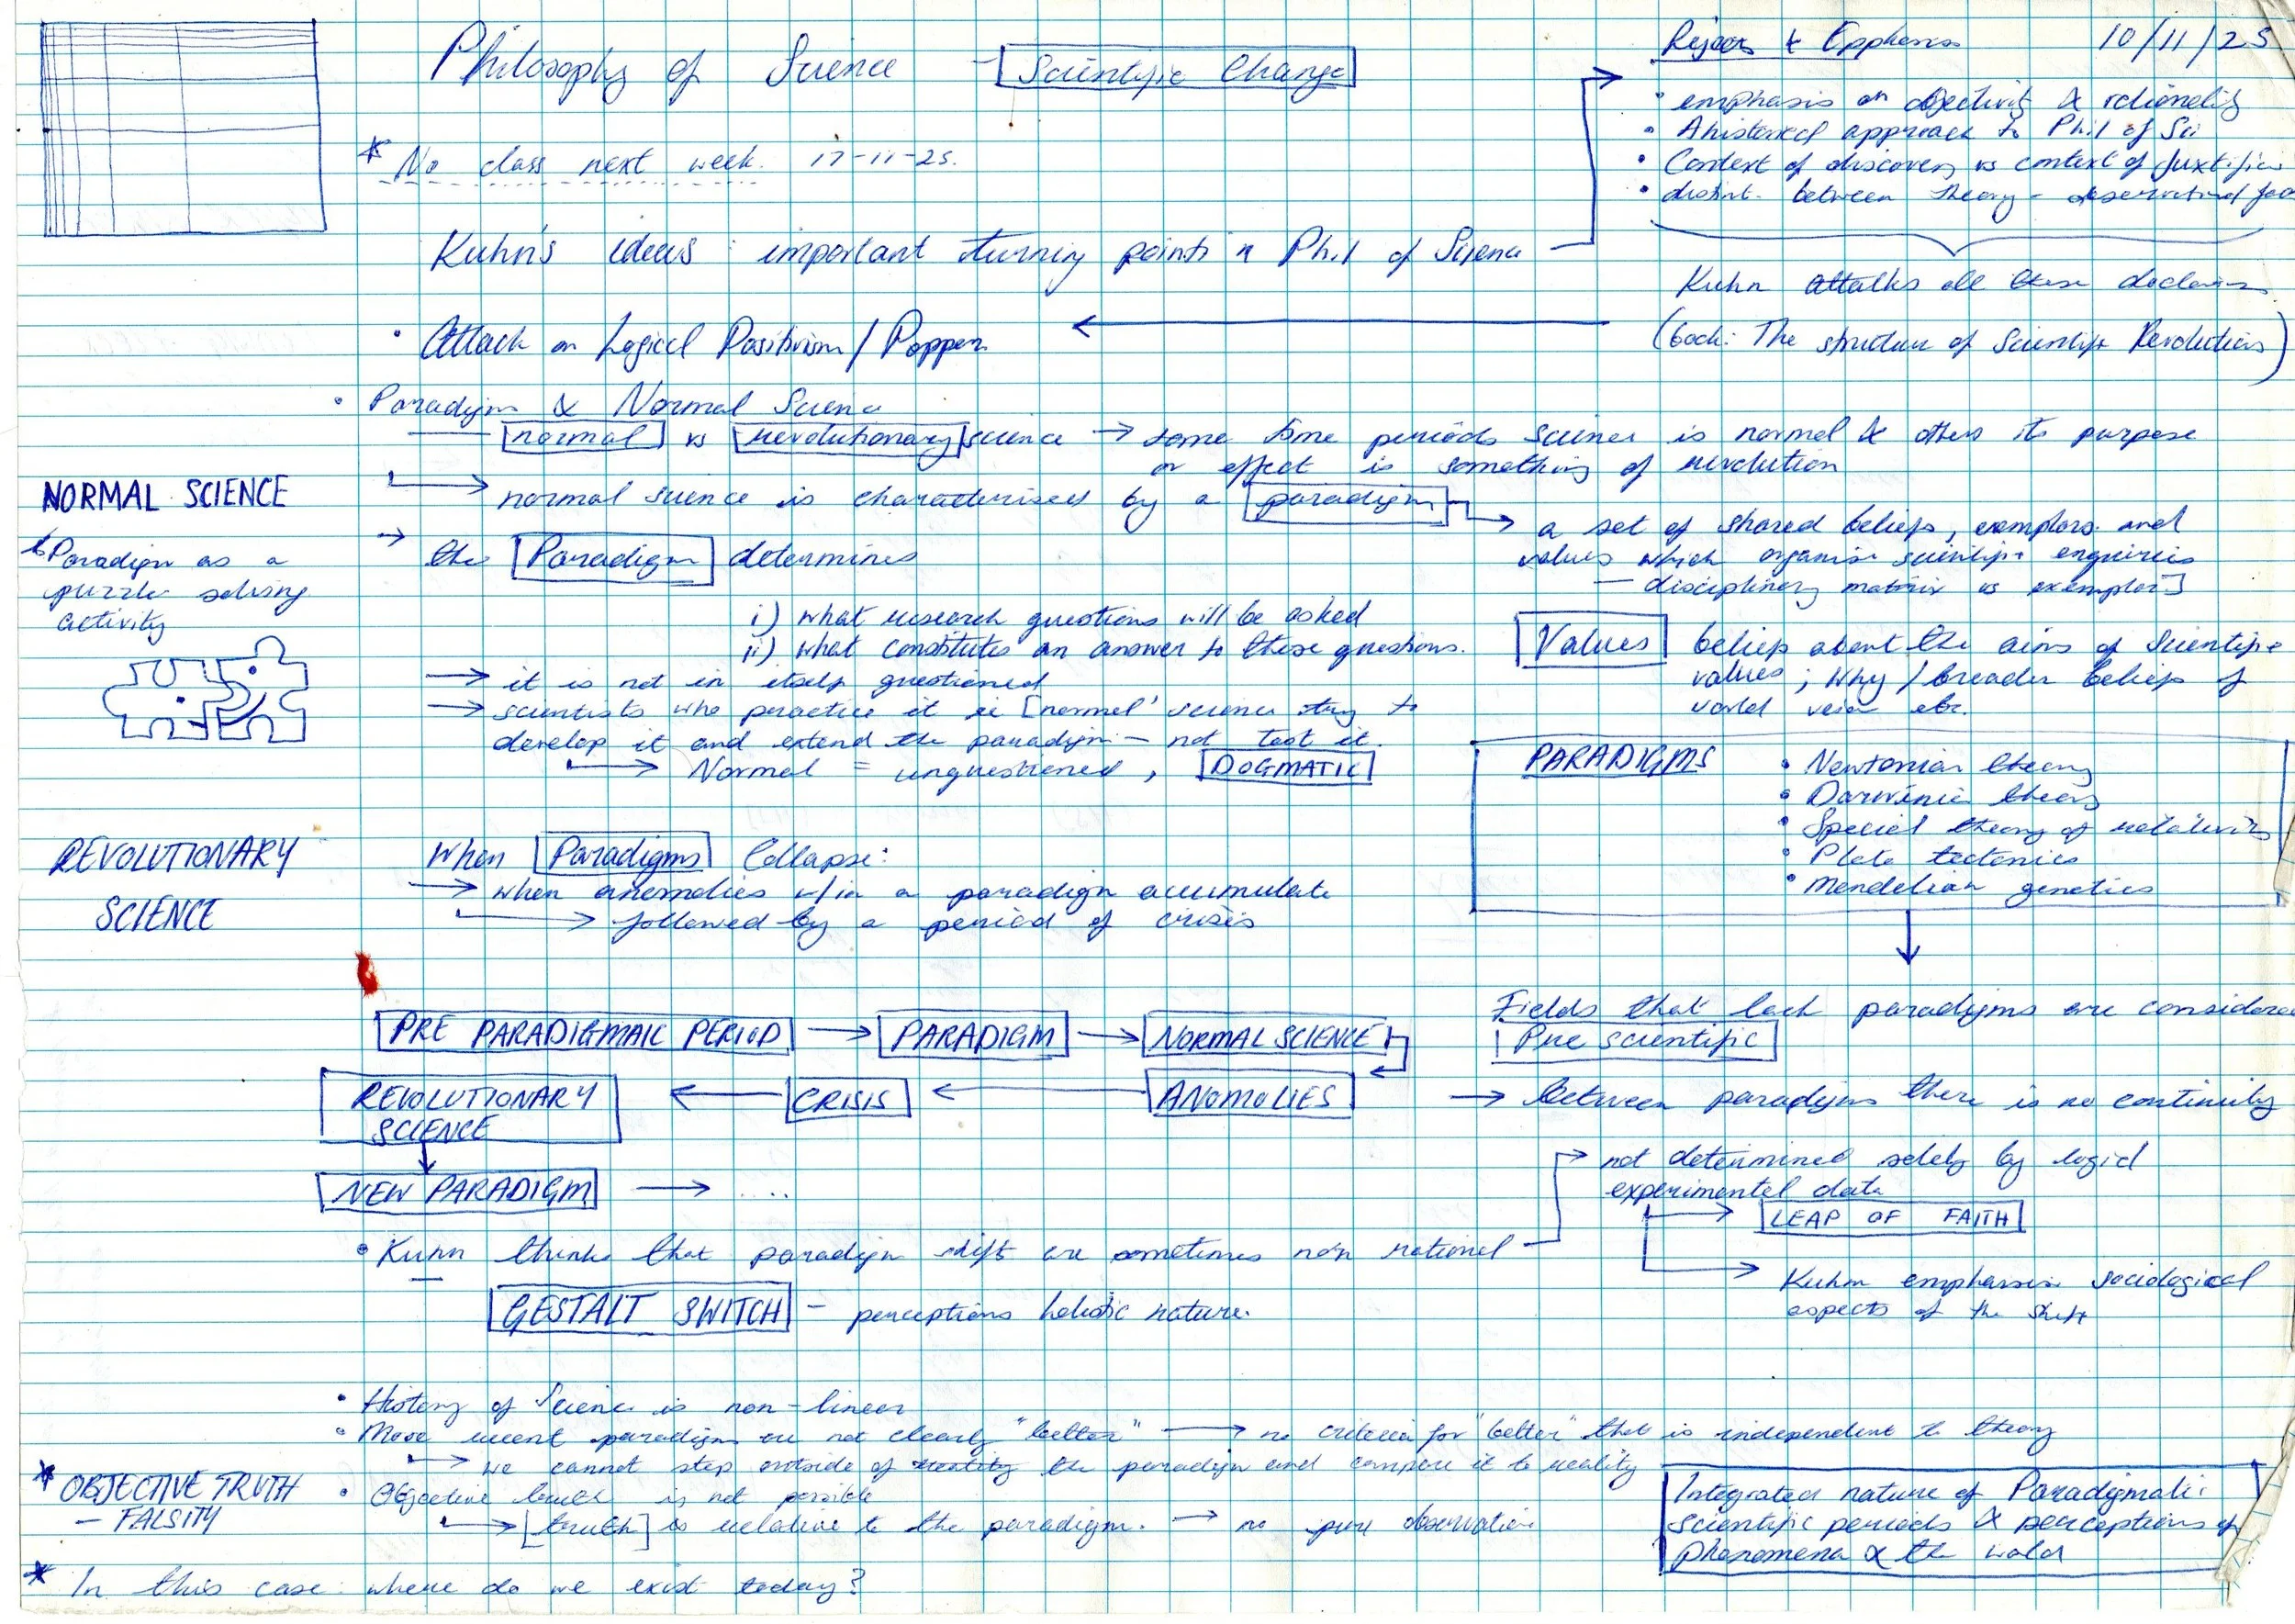 Philosophy of Science - Scientific Change
10/11/25
* No class next week. 17-11-25.
• emphasis on objectivity & rationality
• Ahistorical approach to Phil of Sci
• Context of discovery vs context of
• distint. between theory - observational
Kuhn's ideas important turning points n Phil of Science
Kuhn attalks all these
(book: The structure of Scientific Revolutions)
• Attack on Logical Positivism / Popper
• Paradigm & Normal Science
normal vs revolutionary science → some time periods science is normal & others its purpose
or effect is something of revolution
NORMAL SCIENCE
normal science is characterised by a paradigm
→ a set of shared beliefs, exemplars and
values which organise scientific enquiries
— disciplinary matrix vs exemplar]
Paradigm as a
puzzle solving
activity
→ the Paradigm determines
i) what research questions will be asked
ii) what constitutes an answer to these questions.
→ it is not in itself questioned
→ scientists who practice it ie [normal' science try to
develop it and extend the paradigm - not test it.
→ Normal = unquestioned, DOGMATIC
Values beliefs about the aims of scientific
values; Why / broader beliefs of
world etc.
PARADIGMS
• Newtonian theory
• Darwinie theory
• Special theory of relativity
• Plate tectonics
• Mendelian genetics
REVOLUTIONARY
SCIENCE
When Paradigms Collapse:
→ when anomolies w/in a paradigm accumulate
→ followed by a period of crisis
PRE PARADIGMAIC PERIOD → PARADIGM → NORMAL SCIENCE
REVOLUTIONARY SCIENCE ← CRISIS ← ANOMOLIES
NEW PARADIGM → ...
Fields that lack paradigms are considered
Pre scientific
→ between paradigms there is no continuity
→ not determined solely by logic/
experimental data
→ LEAP OF FAITH
→ Kuhn emphasise sociological
aspects of the shift
• Kuhn thinks that paradigm shift are sometimes non rational
GESTALT SWITCH - perceptions holistic nature.
• History of Science is non-linear
• More recent paradigms are not clearly "better" → no criteria for "better" that is independent to theory
→ we cannot step outside of the paradigm and compare it to reality
* OBJECTIVE TRUTH
— FALSITY
• Objective truth is not possible
→ [truth] is relative to the paradigm. → no pure observation
Integrated nature of Paradigmatic
scientific periods & perceptions of
phenomena & the world
* In this case where do we exist today?